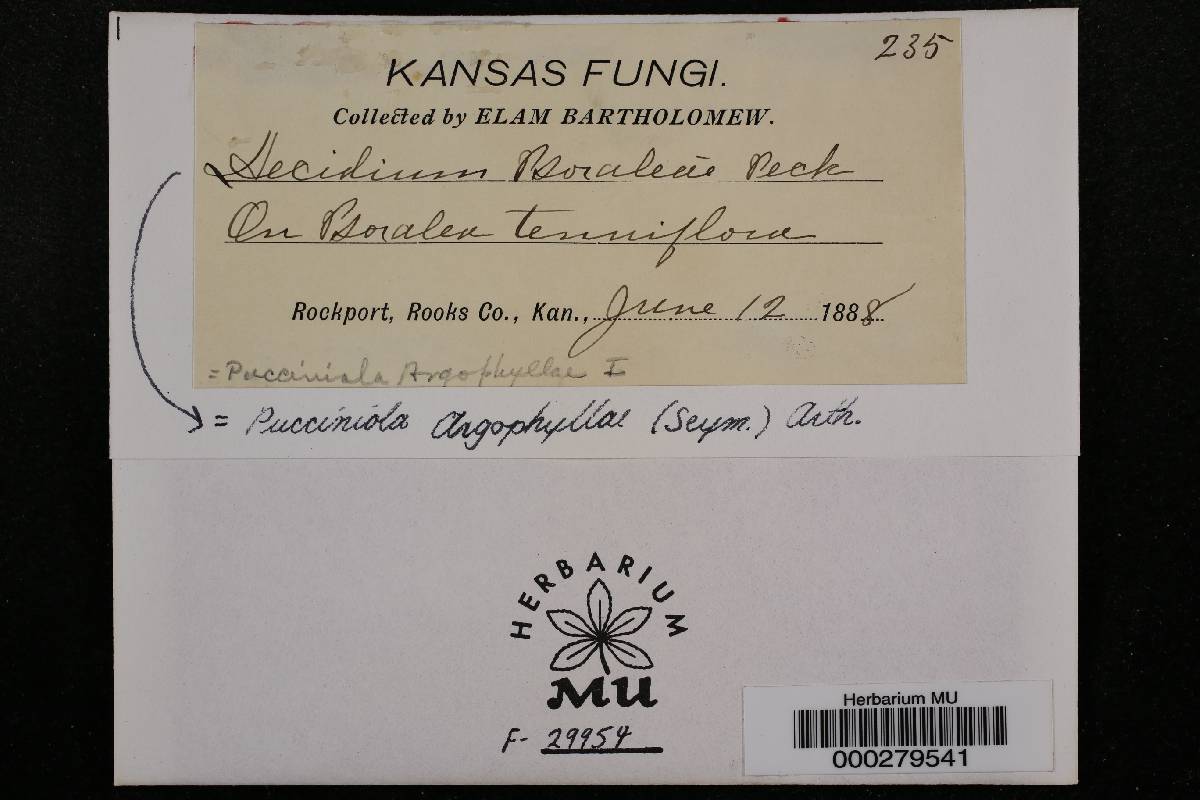 235
KANSAS FUNGI.
Collected by ELAM BARTHOLOMEW.
Aecidium Psoraleae Peck
On Psoralea tenuiflora
Rockport, Rooks Co., Kan., June 12 1888
= Pucciniola Argophyllae I
= Pucciniola Argophyllae (Seym.) Arth.
HERBARIUM
MU
F- 29954
Herbarium MU
000279541